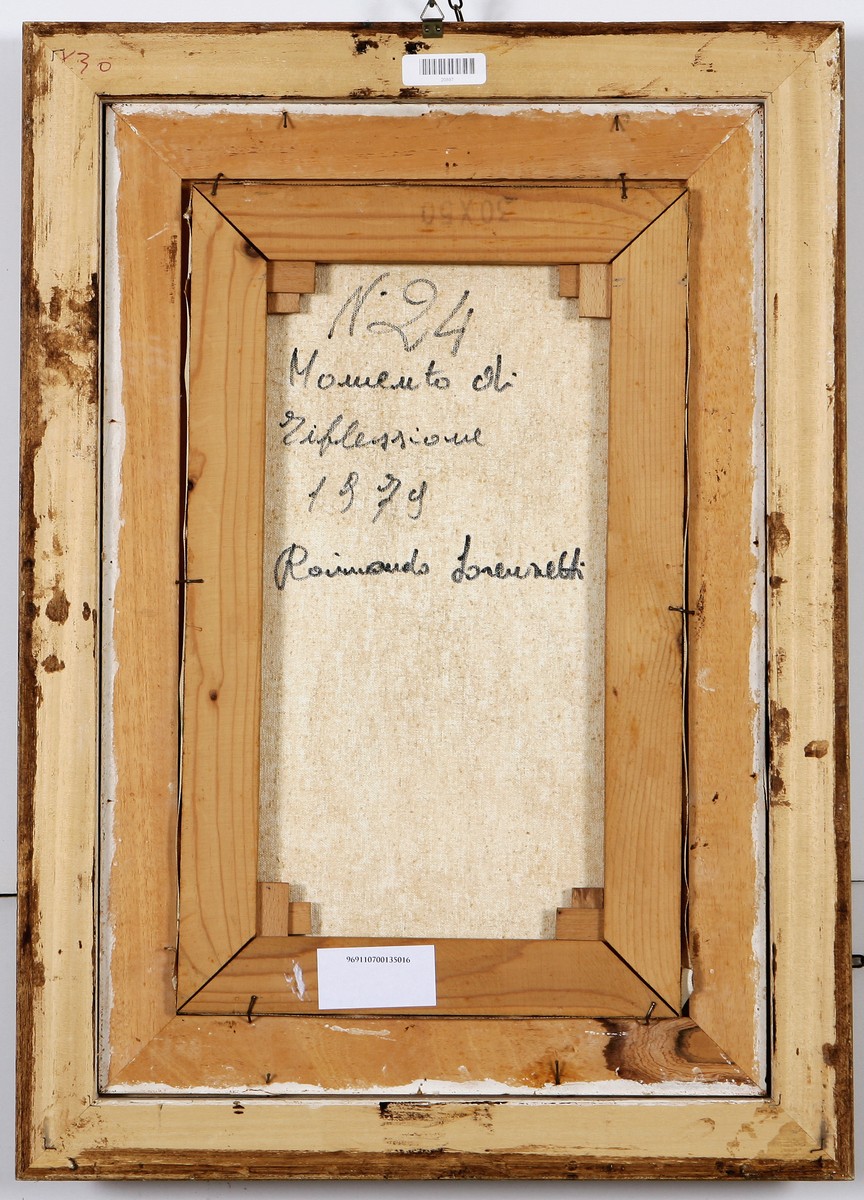 N30
30X50
N. 24
Momento di
riflessione
1979
Raimondo Lorenzetti
969110700135016